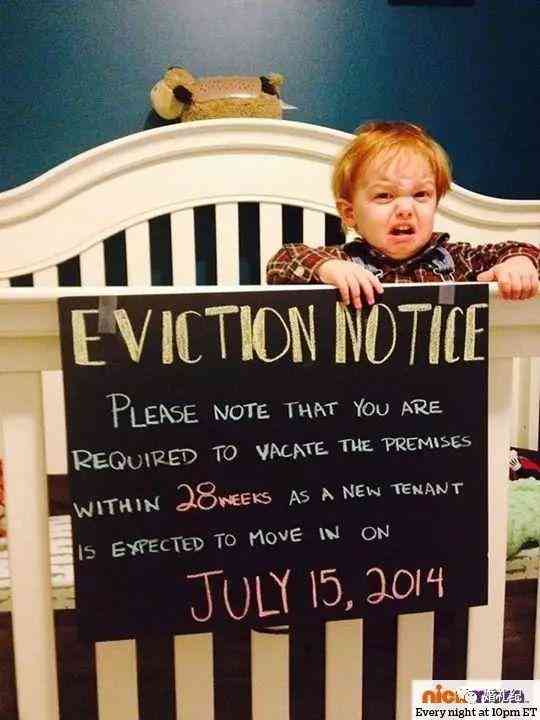 EVICTION NOTICE
PLEASE NOTE THAT YOU ARE
REQUIRED TO VACATE THE PREMISES
WITHIN 28 WEEKS AS A NEW TENANT
IS EXPECTED TO MOVE IN ON
JULY 15, 2014
nick
Every night at 10pm ET